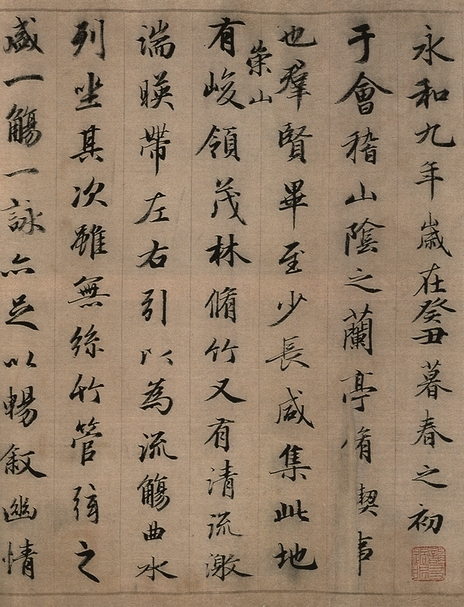 永和九年歲在癸丑暮春之初
于會稽山陰之蘭亭脩禊事
也羣賢畢至少長咸集此地
崇山
有峻領茂林脩竹又有清流激
湍暎帶左右引以為流觴曲水
列坐其次雖無絲竹管弦之
盛一觴一詠亦足以暢叙幽情